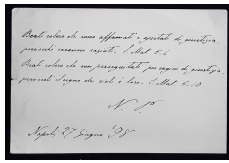 Beati coloro che sono affamati e assetati di giustizia,
perciocchè saranno saziati. S. Mat. 5.6
Beati coloro che son perseguitati per cagion di giustizia
perciocchè il regno dei cieli è loro. S. Mat. 5.10
N. P.
Napoli 27 Giugno 98